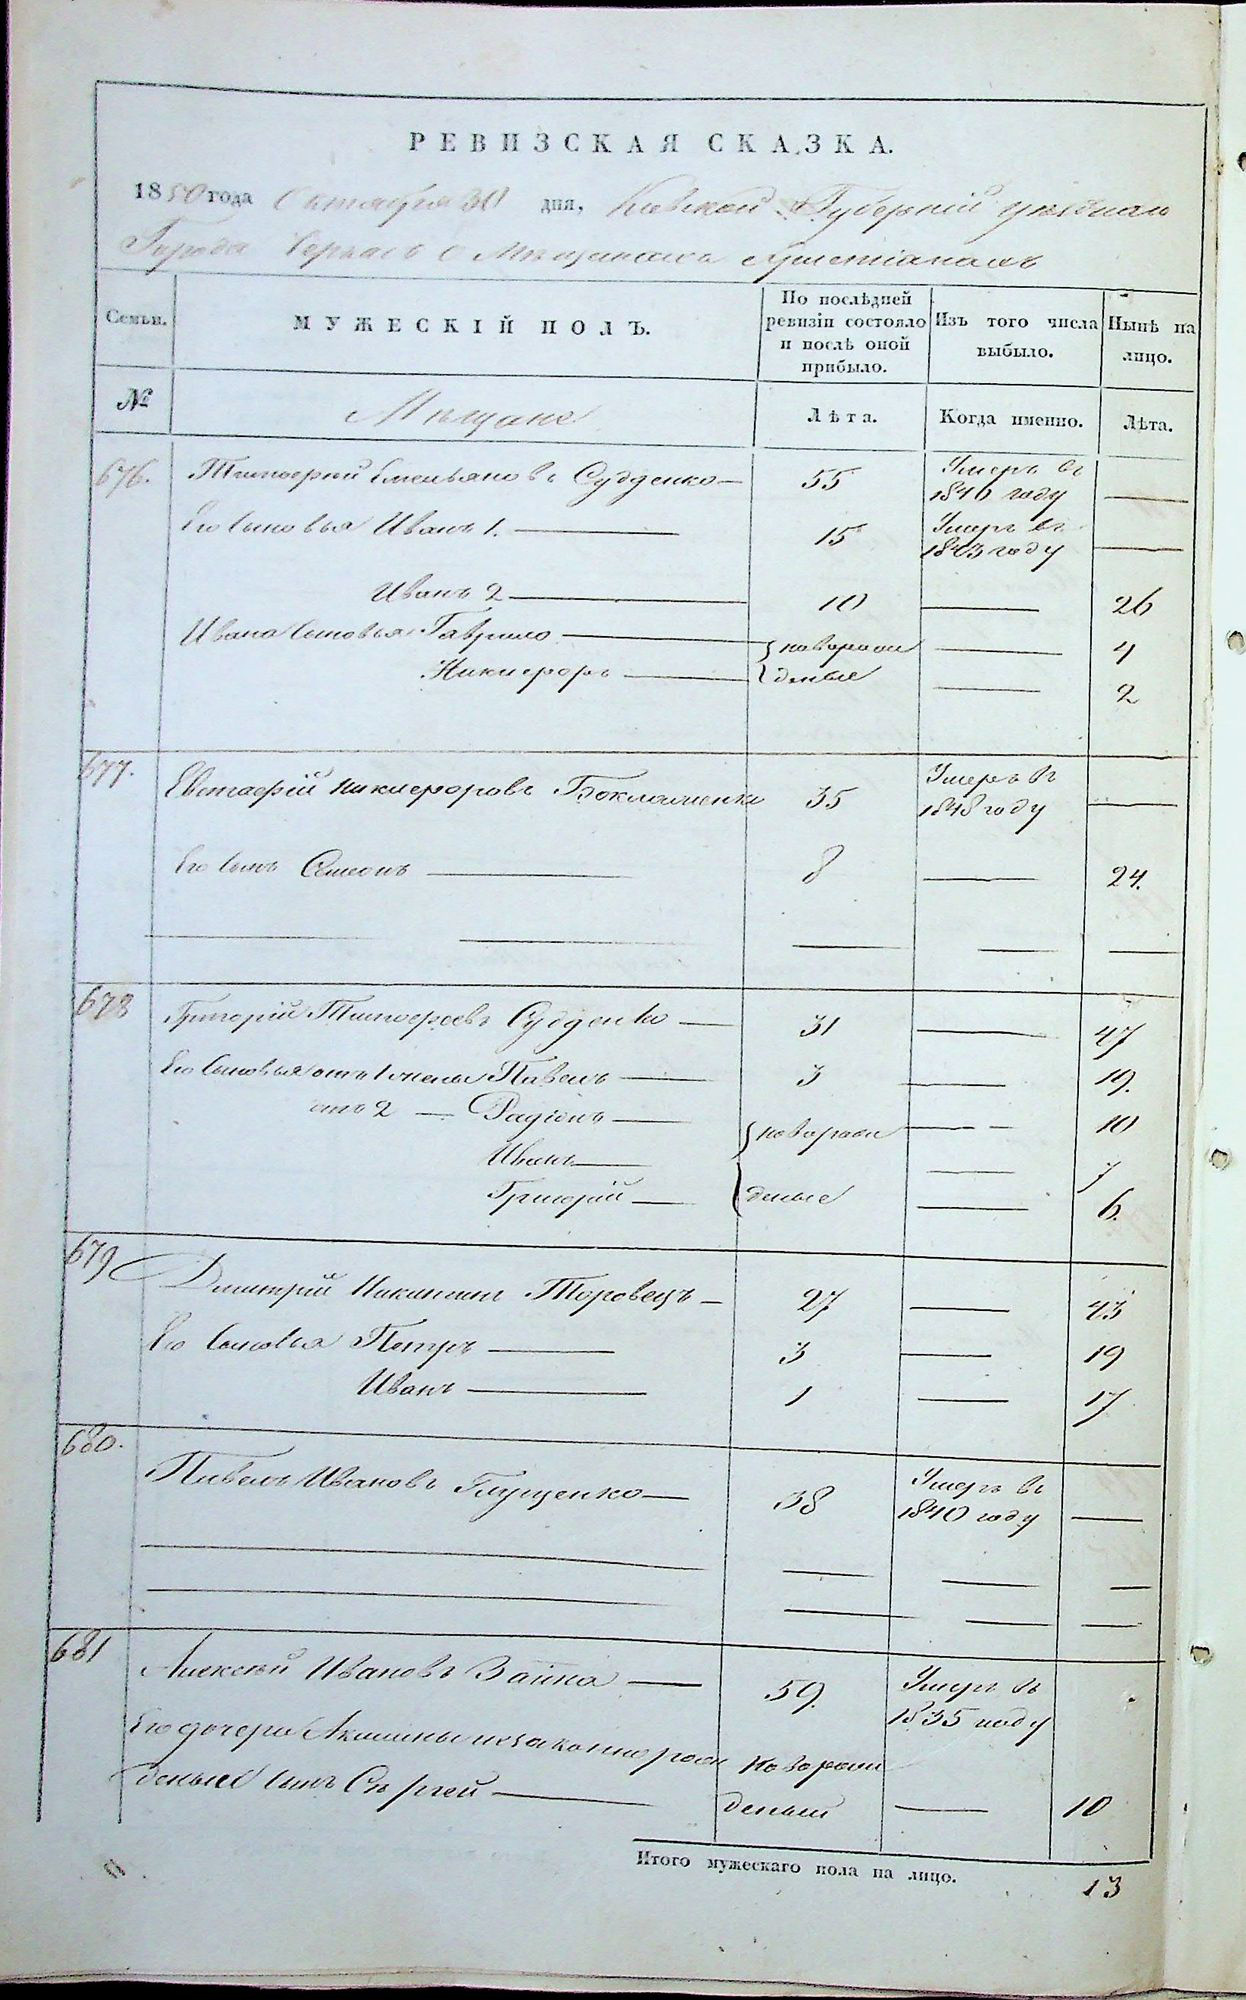 РЕВИЗСКАЯ СКАЗКА.
1850 года Октября 30 дня, Кіевской Губерніи уезднаго
Города Черкасъ о Мещанахъ Христіанахъ
Семьи.
МУЖЕСКІЙ ПОЛЪ.
По послѣдней ревизіи состояло и послѣ оной прибыло.
Изъ того числа выбыло.
Нынѣ на лицо.
№ Мещане Лѣта. Когда именно. Лѣта.
676. Тимоерій Емельяновъ Судденко — 55 Умеръ въ 1840 году —
Его Сыновья Иванъ 1. — 15 Умеръ въ 1843 году —
Иванъ 2 — 10 — 26
Ивана Сыновья Гаврило — новорож — 4
Никиеоръ — денные — 2
677. Евстаерій Никиероровъ Бокламенко 35 Умеръ въ 1848 году —
Его Сынъ Семенъ — 8 — 24.
678 Григорій Тимоереевъ Судденко — 31 — 47
Его Сыновья отъ 1 жены Павелъ — 3 — 19.
отъ 2 — Радіонъ — новорож — 10
Иванъ — — 7
Григорій — денные — 6.
679 Дмитрій Никитинъ Торовецъ — 27 — 43
Его Сыновья Петръ — 3 — 19
Иванъ — 1 — 17
680. Павелъ Ивановъ Глущенко — 38 Умеръ въ 1840 году —
681 Алексѣй Ивановъ Заика — 59. Умеръ въ 1835 году
Его дочери Акилины незаконнорож новорож
денный Сынъ Сергей — денный — 10
Итого мужескаго пола на лицо. 13